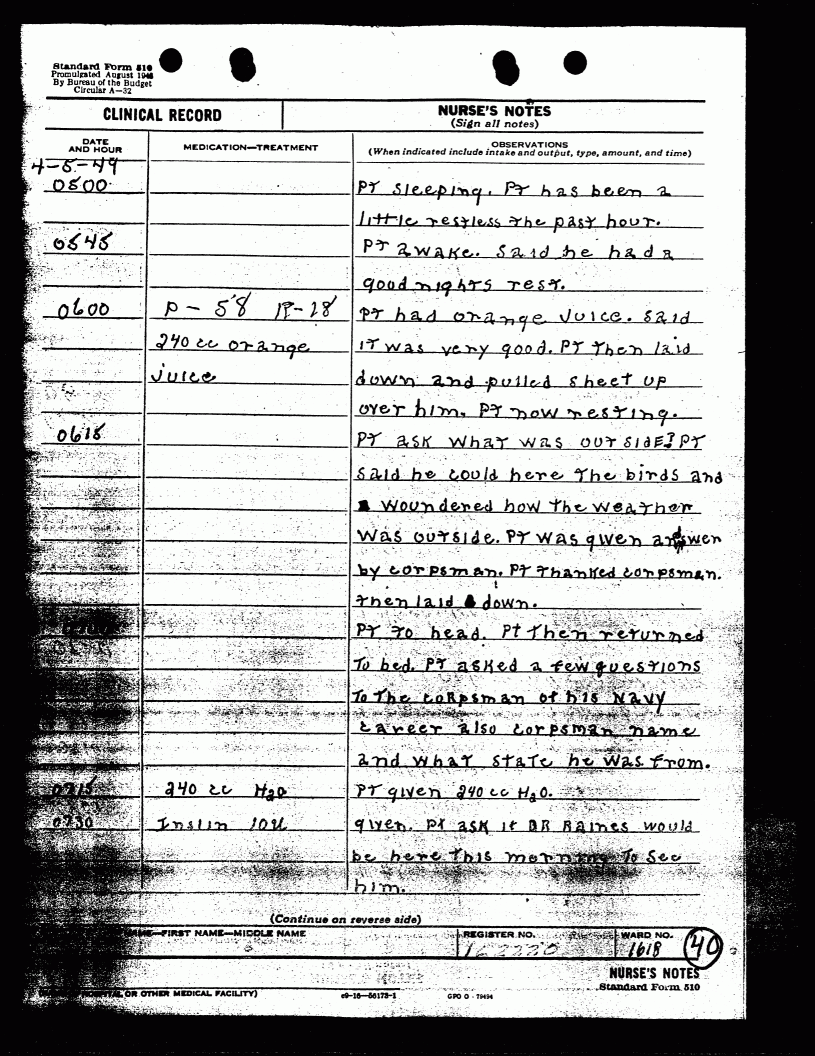 Standard Form 510
Promulgated August 1946
By Bureau of the Budget
Circular A—32
CLINICAL RECORD
NURSE'S NOTES
(Sign all notes)
DATE
AND HOUR
MEDICATION—TREATMENT
OBSERVATIONS
(When indicated include intake and output, type, amount, and time)
4-5-49
0500 PT sleeping. PT has been a
little restless the past hour.
0545 PT awake. Said he had a
good nights rest.
0600 P-58 R-18 PT had orange juice. Said
240 cc orange it was very good. PT then laid
juice down and pulled sheet up
over him. PT now resting.
0615 PT ask what was outside? PT
said he could here the birds and
woundered how the weather
was outside. PT was given answer
by corpsman. PT thanked corpsman.
then laid down.
PT to head. Pt then returned
to bed. PT asked a few questions
to the corpsman of his Navy
career also corpsman name
and what state he was from.
0715 240 cc H2O PT given 240 cc H2O.
0730 Inslin 10U given. Pt ask if DR Raines would
be here this morning to see
him.
(Continue on reverse side)
—FIRST NAME—MIDDLE NAME
REGISTER NO.
WARD NO.
1618
40
NURSE'S NOTES
Standard Form 510
OR OTHER MEDICAL FACILITY)
c9-16—56173-1
GPO O - 79494